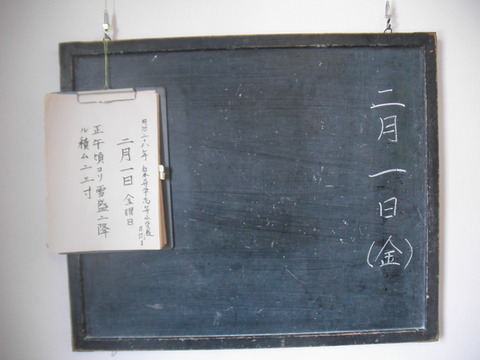 二月一日(金)
二月一日 金曜日
正午頃ヨリ雪盛ニ降
ル積ム二三寸